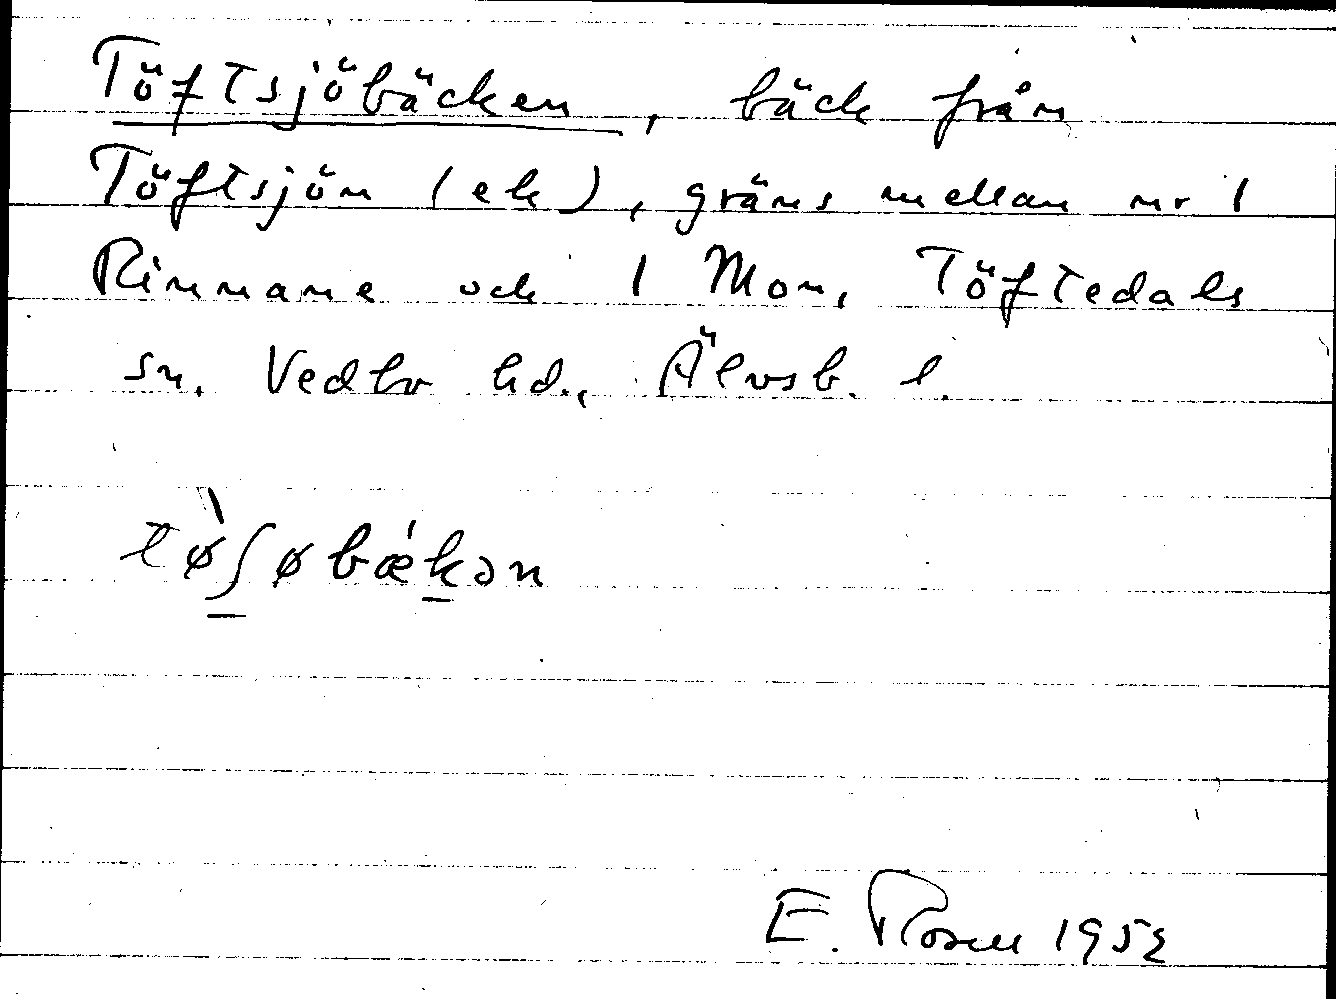 Töftsjöbäcken, bäck från
Töftsjön (ek), gräns mellan nr 1
Rinnane och 1 Mon, Töftedals
sn. Vedbo hd., Älvsb. l.
tø̀ʃøbǽkən
E. Rosell 1952